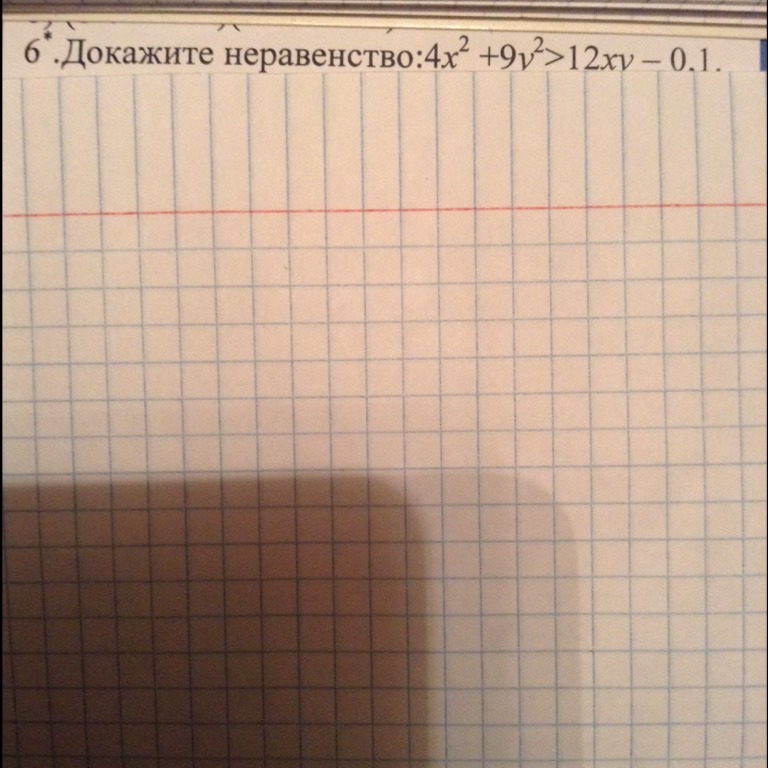 6*.Докажите неравенство:4x² +9y²>12xy – 0,1.